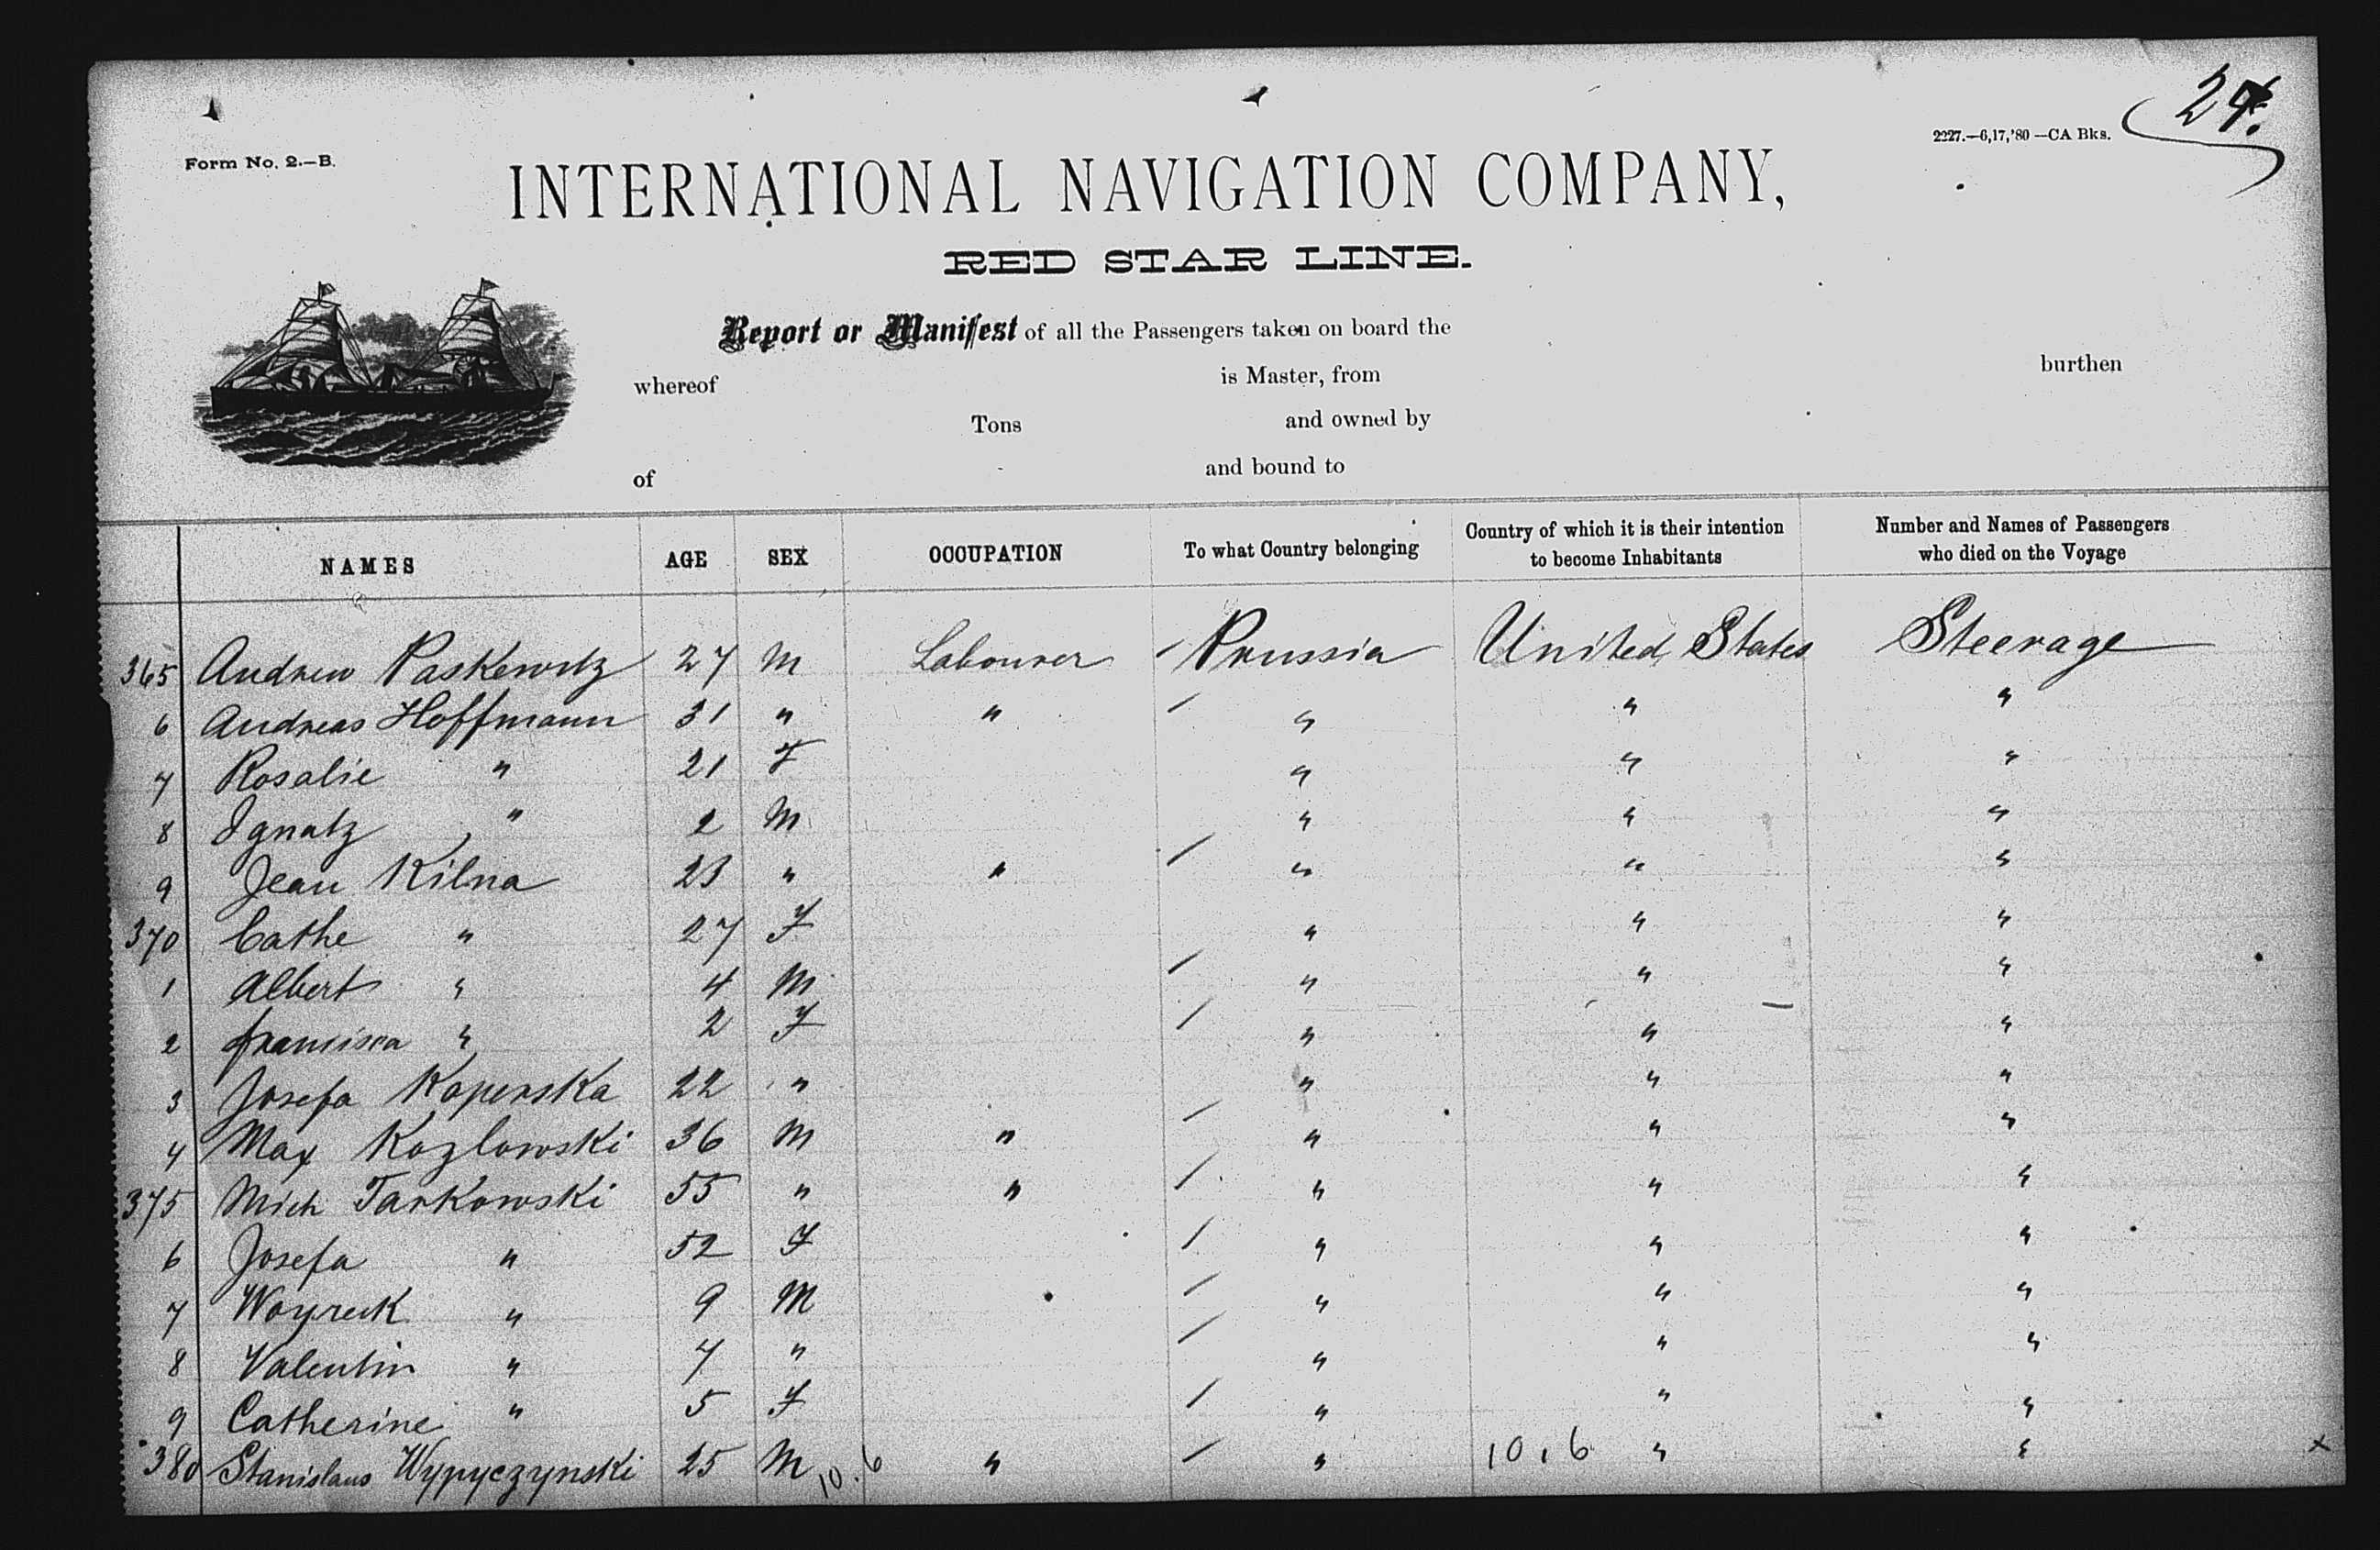 24.
2227.—6,17,'80 —CA Bks.
Form No. 2.—B.
INTERNATIONAL NAVIGATION COMPANY,
RED STAR LINE.
Report or Manifest of all the Passengers taken on board the
burthen
whereof is Master, from
Tons and owned by
of and bound to
NAMES AGE SEX OCCUPATION To what Country belonging Country of which it is their intention to become Inhabitants Number and Names of Passengers who died on the Voyage
365 Andrew Paskewitz 27 M Labourer / Prussia United States Steerage
6 Andreas Hoffmann 31 " " / " " "
7 Rosalie " 21 F " " "
8 Ignatz " 2 M " " "
9 Jean Kilna 23 " " / " " "
370 Cathe " 27 F " " "
1 Albert " 4 M / " " "
2 francisca " 2 F / " " "
3 Josefa Koperska 22 " " " "
4 Max Kozlowski 36 M " / " " "
375 Mich Tarkowski 55 " " / " " "
6 Josefa " 52 F / " " "
7 " 9 M / " " "
8 Valentin " 7 " / " " "
9 Catherine " 5 F / " " "
380 Stanislaus Wypyczynski 25 M 10.6 " / " 10,6 " " x